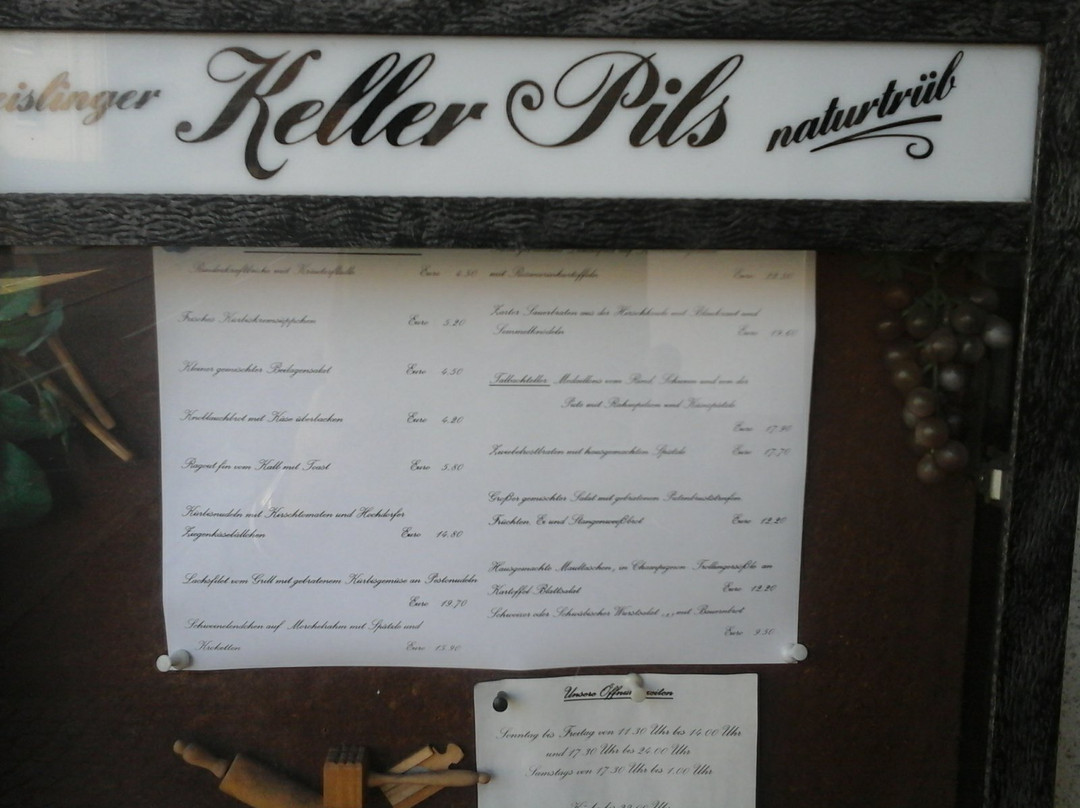 eislinger Keller Pils naturtrüb
Rinderkraftbrühe mit Kräuterflädle Euro 4.50
Frisches Kürbiskremsüppchen Euro 5.20
Kleiner gemischter Beilagensalat Euro 4.50
Knoblauchbrot mit Käse überbacken Euro 4.20
Ragout fin vom Kalb mit Toast Euro 5.80
Kürbisnudeln mit Kirschtomaten und Hochdorfer
Ziegenkäsebällchen Euro 14.80
Lachsfilet vom Grill mit gebratenem Kürbisgemüse an Pestonudeln
Euro 19.70
Schweinelendchen auf Morchelrahm mit Spätzle und
Kroketten Euro 15.90
mit Rosmarinkartoffeln Euro 22.50
Zarter Sauerbraten aus der Hirschkeule mit Blaukraut und
Semmelknödeln Euro 19.60
Medaillons vom Rind, Schwein und von der
Pute mit Rahmpilzen und Käsespätzle
Euro 17.90
Zwiebelrostbraten mit hausgemachten Spätzle Euro 17.70
Großer gemischter Salat mit gebratenen Putenbruststreifen,
Früchten, Ei und Stangenweißbrot Euro 12.20
Hausgemachte Maultaschen, in Champignon Trollingersößle an
Kartoffel Blattsalat Euro 12.20
Schweizer oder Schwäbischer Wurstsalat ,,, mit Bauernbrot
Euro 9.50
Unsere
Sonntag bis Freitag von 11.30 Uhr bis 14.00 Uhr
und 17.30 Uhr bis 24.00 Uhr
Samstags von 17.30 Uhr bis 1.00 Uhr